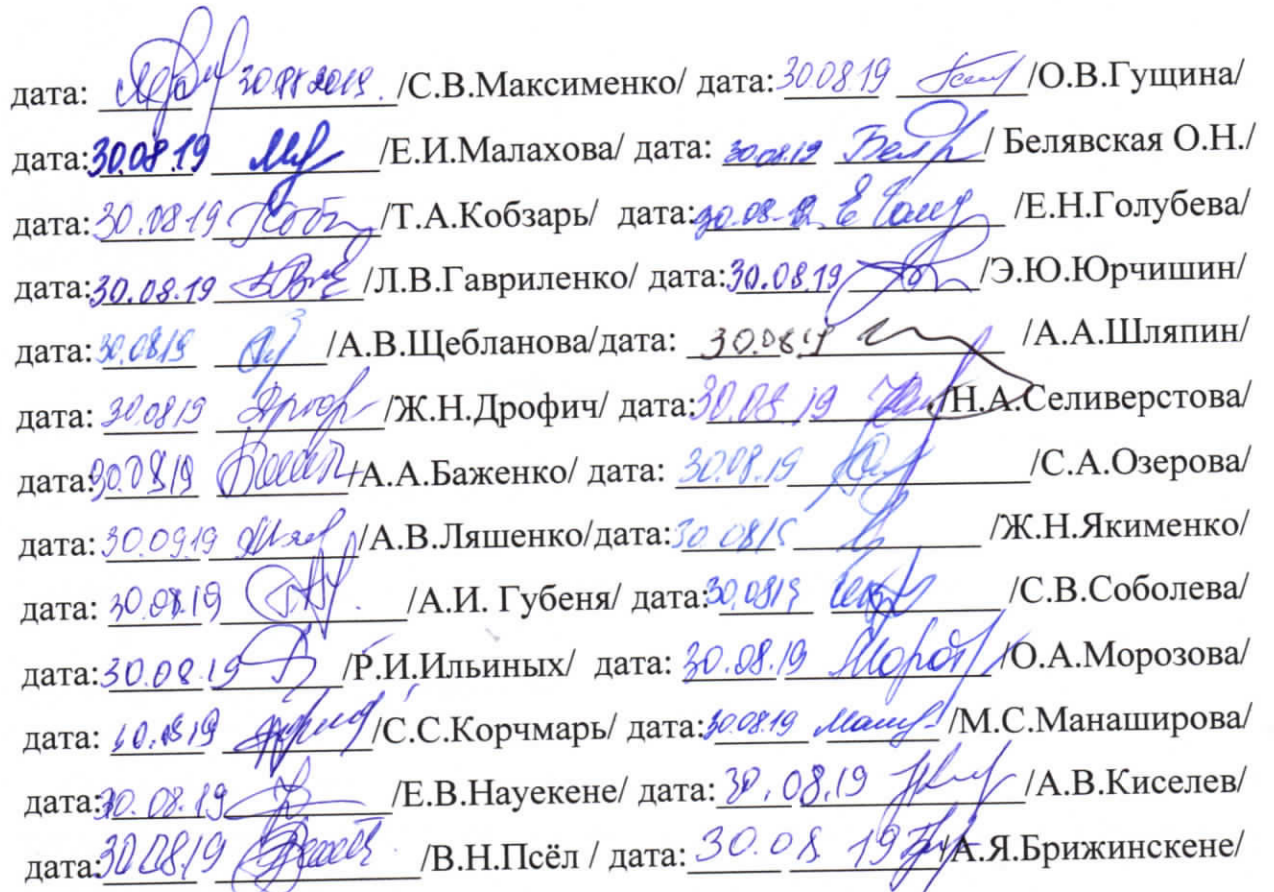 дата: 30.08.2019. /С.В.Максименко/ дата: 30.08.19 /О.В.Гущина/
дата: 30.08.19 /Е.И.Малахова/ дата: 30.08.19 / Белявская О.Н./
дата: 30.08.19 /Т.А.Кобзарь/ дата: 30.08.19 /Е.Н.Голубева/
дата: 30.08.19 /Л.В.Гавриленко/ дата: 30.08.19 /Э.Ю.Юрчишин/
дата: 30.08.19 /А.В.Щебланова/дата: 30.08.19 /А.А.Шляпин/
дата: 30.08.19 /Ж.Н.Дрофич/ дата: 30.08.19 /Н.А.Селиверстова/
дата: 30.08.19 /А.А.Баженко/ дата: 30.08.19 /С.А.Озерова/
дата: 30.09.19 /А.В.Ляшенко/дата: 30.08.19 /Ж.Н.Якименко/
дата: 30.08.19 /А.И. Губеня/ дата: 30.08.19 /С.В.Соболева/
дата: 30.08.19 /Р.И.Ильиных/ дата: 30.08.19 /О.А.Морозова/
дата: /С.С.Корчмарь/ дата: 30.08.19 /М.С.Манаширова/
дата: 30.08.19 /Е.В.Науекене/ дата: 30.08.19 /А.В.Киселев/
дата: 30.08.19 /В.Н.Псёл / дата: 30.08.19 /А.Я.Брижинскене/